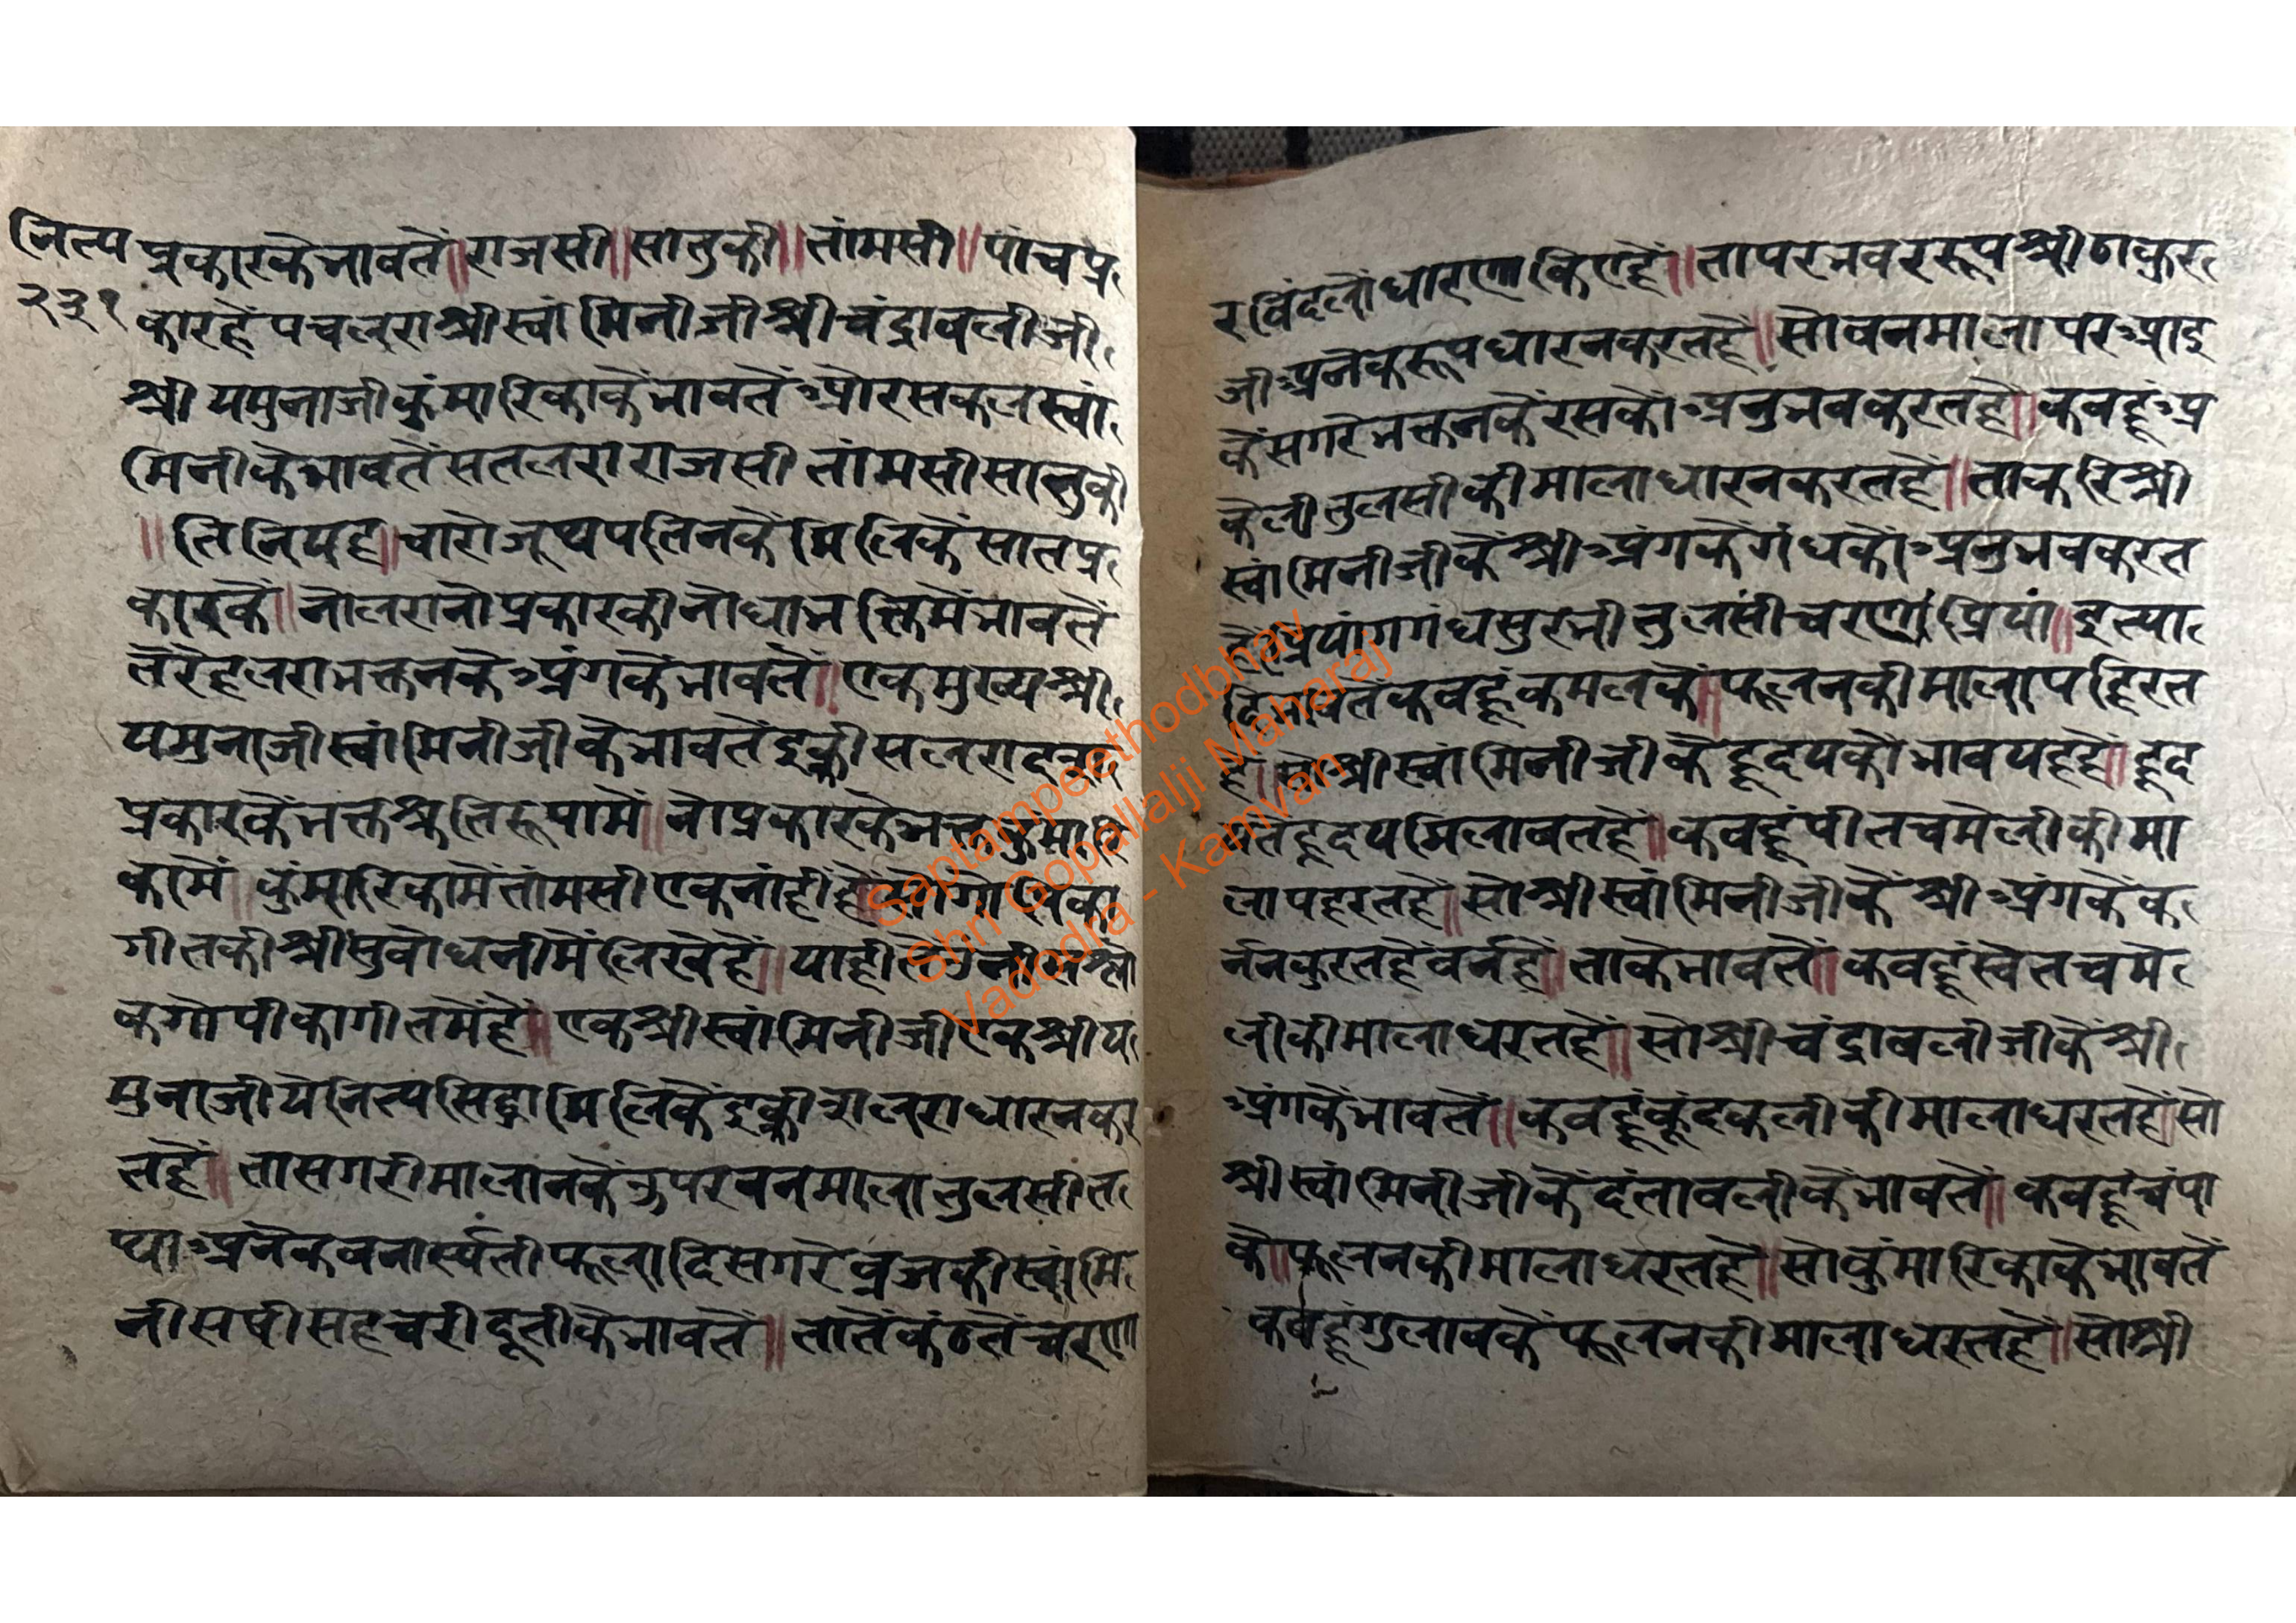 नित्य
२३१
प्रकारकेभावतें॥राजसी॥सातुकी॥तांमसी॥पांचप्र
कारहेंपचलराश्रीस्वांमिनीजीश्रीचंद्रावलीजी
श्रीयमुनाजीकुंमारिकाकेंभावतेंअौरसकलस्वां
मिनीकेभावतेंसतलराराजसीतांमसीसातुकी
॥तिनियह॥चारोजूथपतिनकेंमिलिकेंसातप्र
कारकें॥नोलरानोप्रकारकीनोधाभक्तिमेंभावतें
तेरेहलराभक्तनकेअंगकेंभावतें॥एकमुख्यश्री
यमुनाजीस्वांमिनीजीकेभावतेंइक्कीसलरा
प्रकारकेंभक्तश्रुतिरूपामें॥नोप्रकारकेभक्तकुंमारि
कामें॥कुंमारिकामेंतांमसीएकनांहींहे॥सोगोपिका
गीतकीश्रीसुबोधनीमेंलिखेहें॥याहीतें
कगोपीकागीतमेंहें॥एकश्रीस्वांमिनीजीएकश्रीय
मुनाजीयेनित्यसिद्धामिलिकेंइक्कीसलराधारनकर
तहें॥तासगरीमालानकेंऊपरवनमालातुलसीत
थाअनेकवनास्पतीफूलादिसगरेव्रजकीस्वांमि
नीसषीसहचरीदूतीकेभावतें॥तातेंकंठतेंचरणा
रविंदलोंधारणकिएहें॥तापरभवररूपश्रीठाकुर
जीअनेकरूपधारनकरतहें॥सोवनमालापरआइ
केंसगरेभक्तनकेंरसकोंअनुभवकरतहें॥कबहूंअ
केलीतुलसीकीमालाधारनकरतहें॥ताकरिश्री
स्वांमिनीजीकेंश्रीअंगकेंगंधकोंअनुभवकरत
हेंप्रियांगगंधसुरभीतुलसीचरणांप्रियां॥इत्या
दिभावतेंकबहूंकमलकें॥फूलनकीमालापहिरत
हें॥सोश्रीस्वांमिनीजीकेंहृदयकोंभावयहहें॥हृद
यतेंहृदयमिलावतहें॥कबहूंपीतचमेलीकीमा
लापहरतहें॥सोश्रीस्वांमिनीजीकेंश्रीअंगकेंव
र्ननकुरतहेंवर्नहें॥ताकेभावतें॥कबहूंस्वेतचमे
लीकीमालाधरतहें॥सोश्रीचंद्रावलीजीकेंश्री
अंगकेंभावतें॥कबहूंकूंदकलीकीमालाधरतहें॥सो
श्रीस्वांमिनीजीकेंदंतावलीकेंभावतें॥कबहूंचंपा
के॥फूलनकीमालाधरतहें॥सोकुंमारिकाकेभावतें
कबहूंगुलाबकेंफूलनकीमालाधरतहें॥सोश्री
Saptampeethodbhav
Shri Gopallalji Maharaj
Vadodra - Kamvan